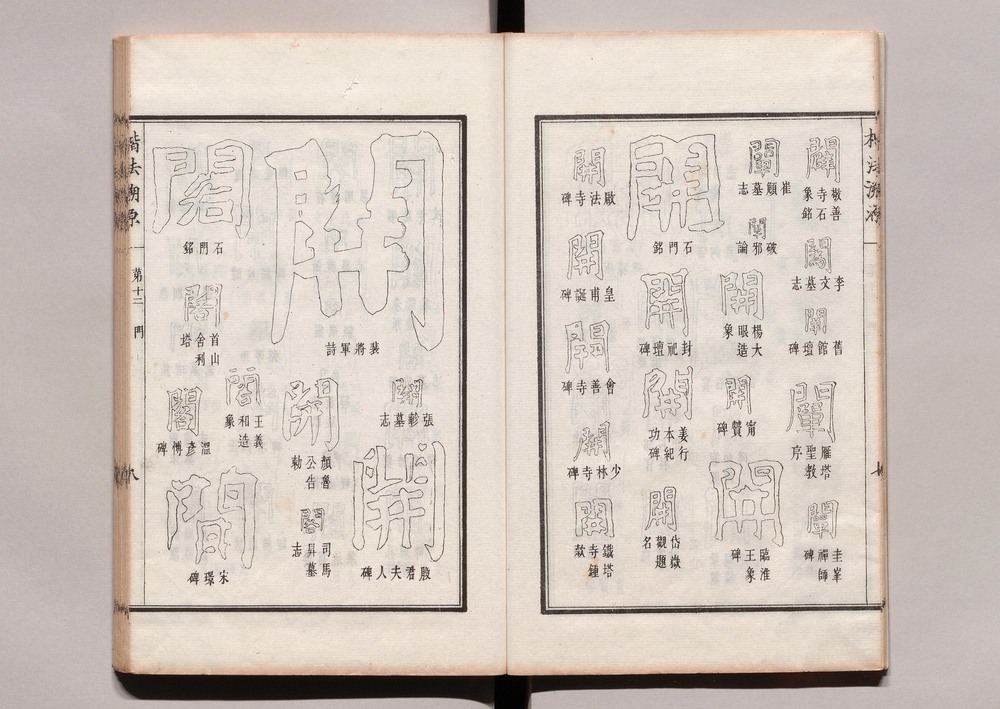 楷法溯源
闢
敬善寺石象銘
李文墓志
舊館壇碑
闡
雁塔聖教序
闡
圭峯禪師碑
闡
崔頠墓志
闡
破邪論
開
楊大眼造象
開
甯贊碑
開
臨淮王象碑
開
石門銘
開
封祀壇碑
開
姜行本紀功碑
開
岱嶽觀題名
開
啟法寺碑
開
皇甫誕碑
開
會善寺碑
開
少林寺碑
開
鐵塔寺鐘款
開
裴將軍詩
開
張軫墓志
開
殷君夫人碑
開
顏魯公告勅
閣
司馬昇墓志
閣
石門銘
閣
首山舍利塔
閣
王義和造象
閣
溫彥博碑
閒
宋璟碑
楷法溯源
第十二 門
八